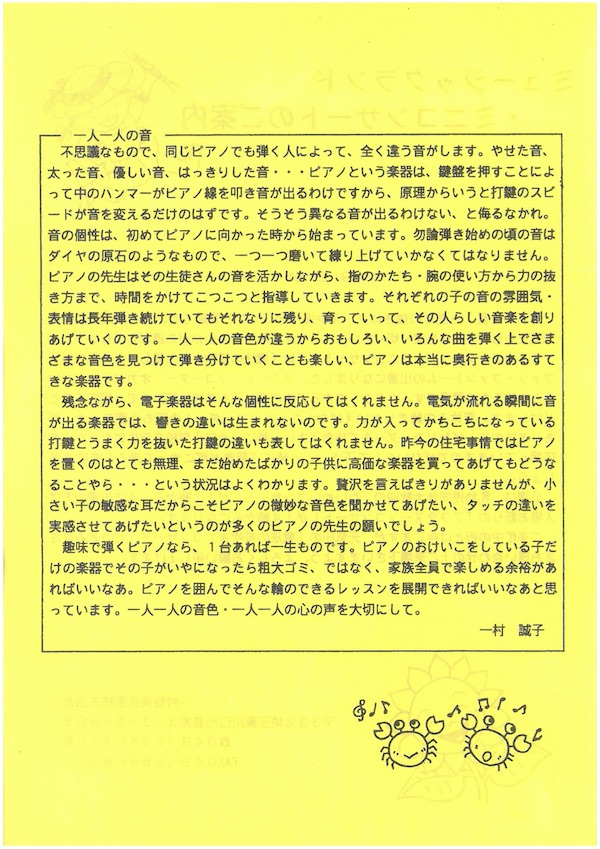 一人一人の音
不思議なもので、同じピアノでも弾く人によって、全く違う音がします。やせた音、
太った音、優しい音、はっきりした音・・・ピアノという楽器は、鍵盤を押すことによ
って中のハンマーがピアノ線を叩き音が出るわけですから、原理からいうと打鍵のスピ
ードが音を変えるだけのはずです。そうそう異なる音が出るわけない、と侮るなかれ。
音の個性は、初めてピアノに向かった時から始まっています。勿論弾き始めの頃の音は
ダイヤの原石のようなもので、一つ一つ磨いて練り上げていかなくてはなりません。
ピアノの先生はその生徒さんの音を活かしながら、指のかたち・腕の使い方から力の抜
き方まで、時間をかけてこつこつと指導していきます。それぞれの子の音の雰囲気・
表情は長年弾き続けていてもそれなりに残り、育っていって、その人らしい音楽を創り
あげていくのです。一人一人の音色が違うからおもしろい、いろんな曲を弾く上でさま
ざまな音色を見つけて弾き分けていくことも楽しい、ピアノは本当に奥行きのあるすて
きな楽器です。
残念ながら、電子楽器はそんな個性に反応してはくれません。電気が流れる瞬間に音
が出る楽器では、響きの違いは生まれないのです。力が入ってかちこちになっている
打鍵とうまく力を抜いた打鍵の違いも表してはくれません。昨今の住宅事情ではピアノ
を置くのはとても無理、まだ始めたばかりの子供に高価な楽器を買ってあげてもどうな
ることやら・・・という状況はよくわかります。贅沢を言えばきりがありませんが、小
さい子の敏感な耳だからこそピアノの微妙な音色を聞かせてあげたい、タッチの違いを
実感させてあげたいというのが多くのピアノの先生の願いでしょう。
趣味で弾くピアノなら、1台あれば一生ものです。ピアノのおけいこをしている子だ
けの楽器でその子がいやになったら粗大ゴミ、ではなく、家族全員で楽しめる余裕があ
ればいいなあ。ピアノを囲んでそんな輪のできるレッスンを展開できればいいなあと思
っています。一人一人の音色・一人一人の心の声を大切にして。
一村 誠子